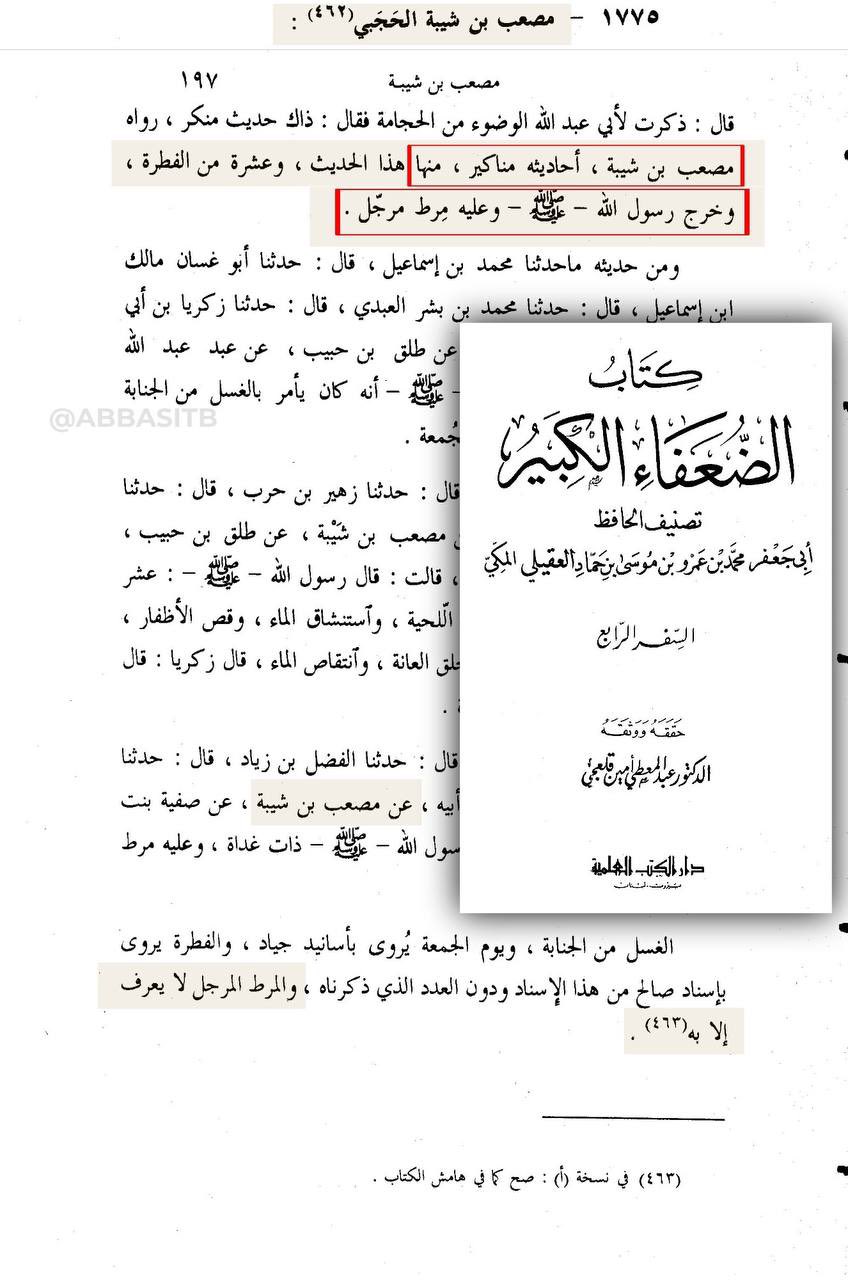 ١٧٧٥ - مصعب بن شيبة الحَجَبي(٤٦٢) :
مصعب بن شيبة ١٩٧
قال : ذكرت لأبي عبد الله الوضوء من الحجامة فقال : ذاك حديث منكر ، رواه
مصعب بن شيبة ، أحاديثه مناكير ، منها هذا الحديث ، وعشرة من الفطرة ،
وخرج رسول الله - ﷺ - وعليه مِرط مرجّل .
ومن حديثه ماحدثنا محمد بن إسماعيل ، قال : حدثنا أبو غسان مالك
ابن إسماعيل ، قال : حدثنا محمد بن بشر العبدي ، قال : حدثنا زكريا بن أبي
عن طلق بن حبيب ، عن عبد عبد الله
- ﷺ - أنه كان يأمر بالغسل من الجنابة
@ABBASITB
جُمعة .
قال : حدثنا زهير بن حرب ، قال : حدثنا
مصعب بن شَيْبة ، عن طلق بن حبيب ،
، قالت : قال رسول الله - ﷺ - : عشر
اللّحية ، وآستنشاق الماء ، وقص الأظفار ،
حلق العانة ، وآنتقاص الماء ، قال زكريا : قال
قال : حدثنا الفضل بن زياد ، قال : حدثنا
أبيه ، عن مصعب بن شيبة ، عن صفية بنت
سول الله - ﷺ - ذات غداة ، وعليه مرط
الغسل من الجنابة ، ويوم الجمعة يُروى بأسانيد جياد ، والفطرة يروى
بإسناد صالح من هذا الإسناد ودون العدد الذي ذكرناه ، والمرط المرجل لا يعرف
إلا به(٤٦٣) .
(٤٦٣) في نسخة (أ) : صح كما في هامش الكتاب .
كِتَابُ
الضُّعَفَاءِ الكَبِيرُ
تصنيف الحافظ
أبي جَعْفر محمَّد بْن عَمرو بْن مُوسَى بْن حمَّاد العقيلي المكيّ
السّفر الرّابع
حَقَّقَهُ وَوَثَّقَهُ
الدكتور عبد المعطي أمين قلعجي
دار الكتب العلمية
بيروت - لبنان